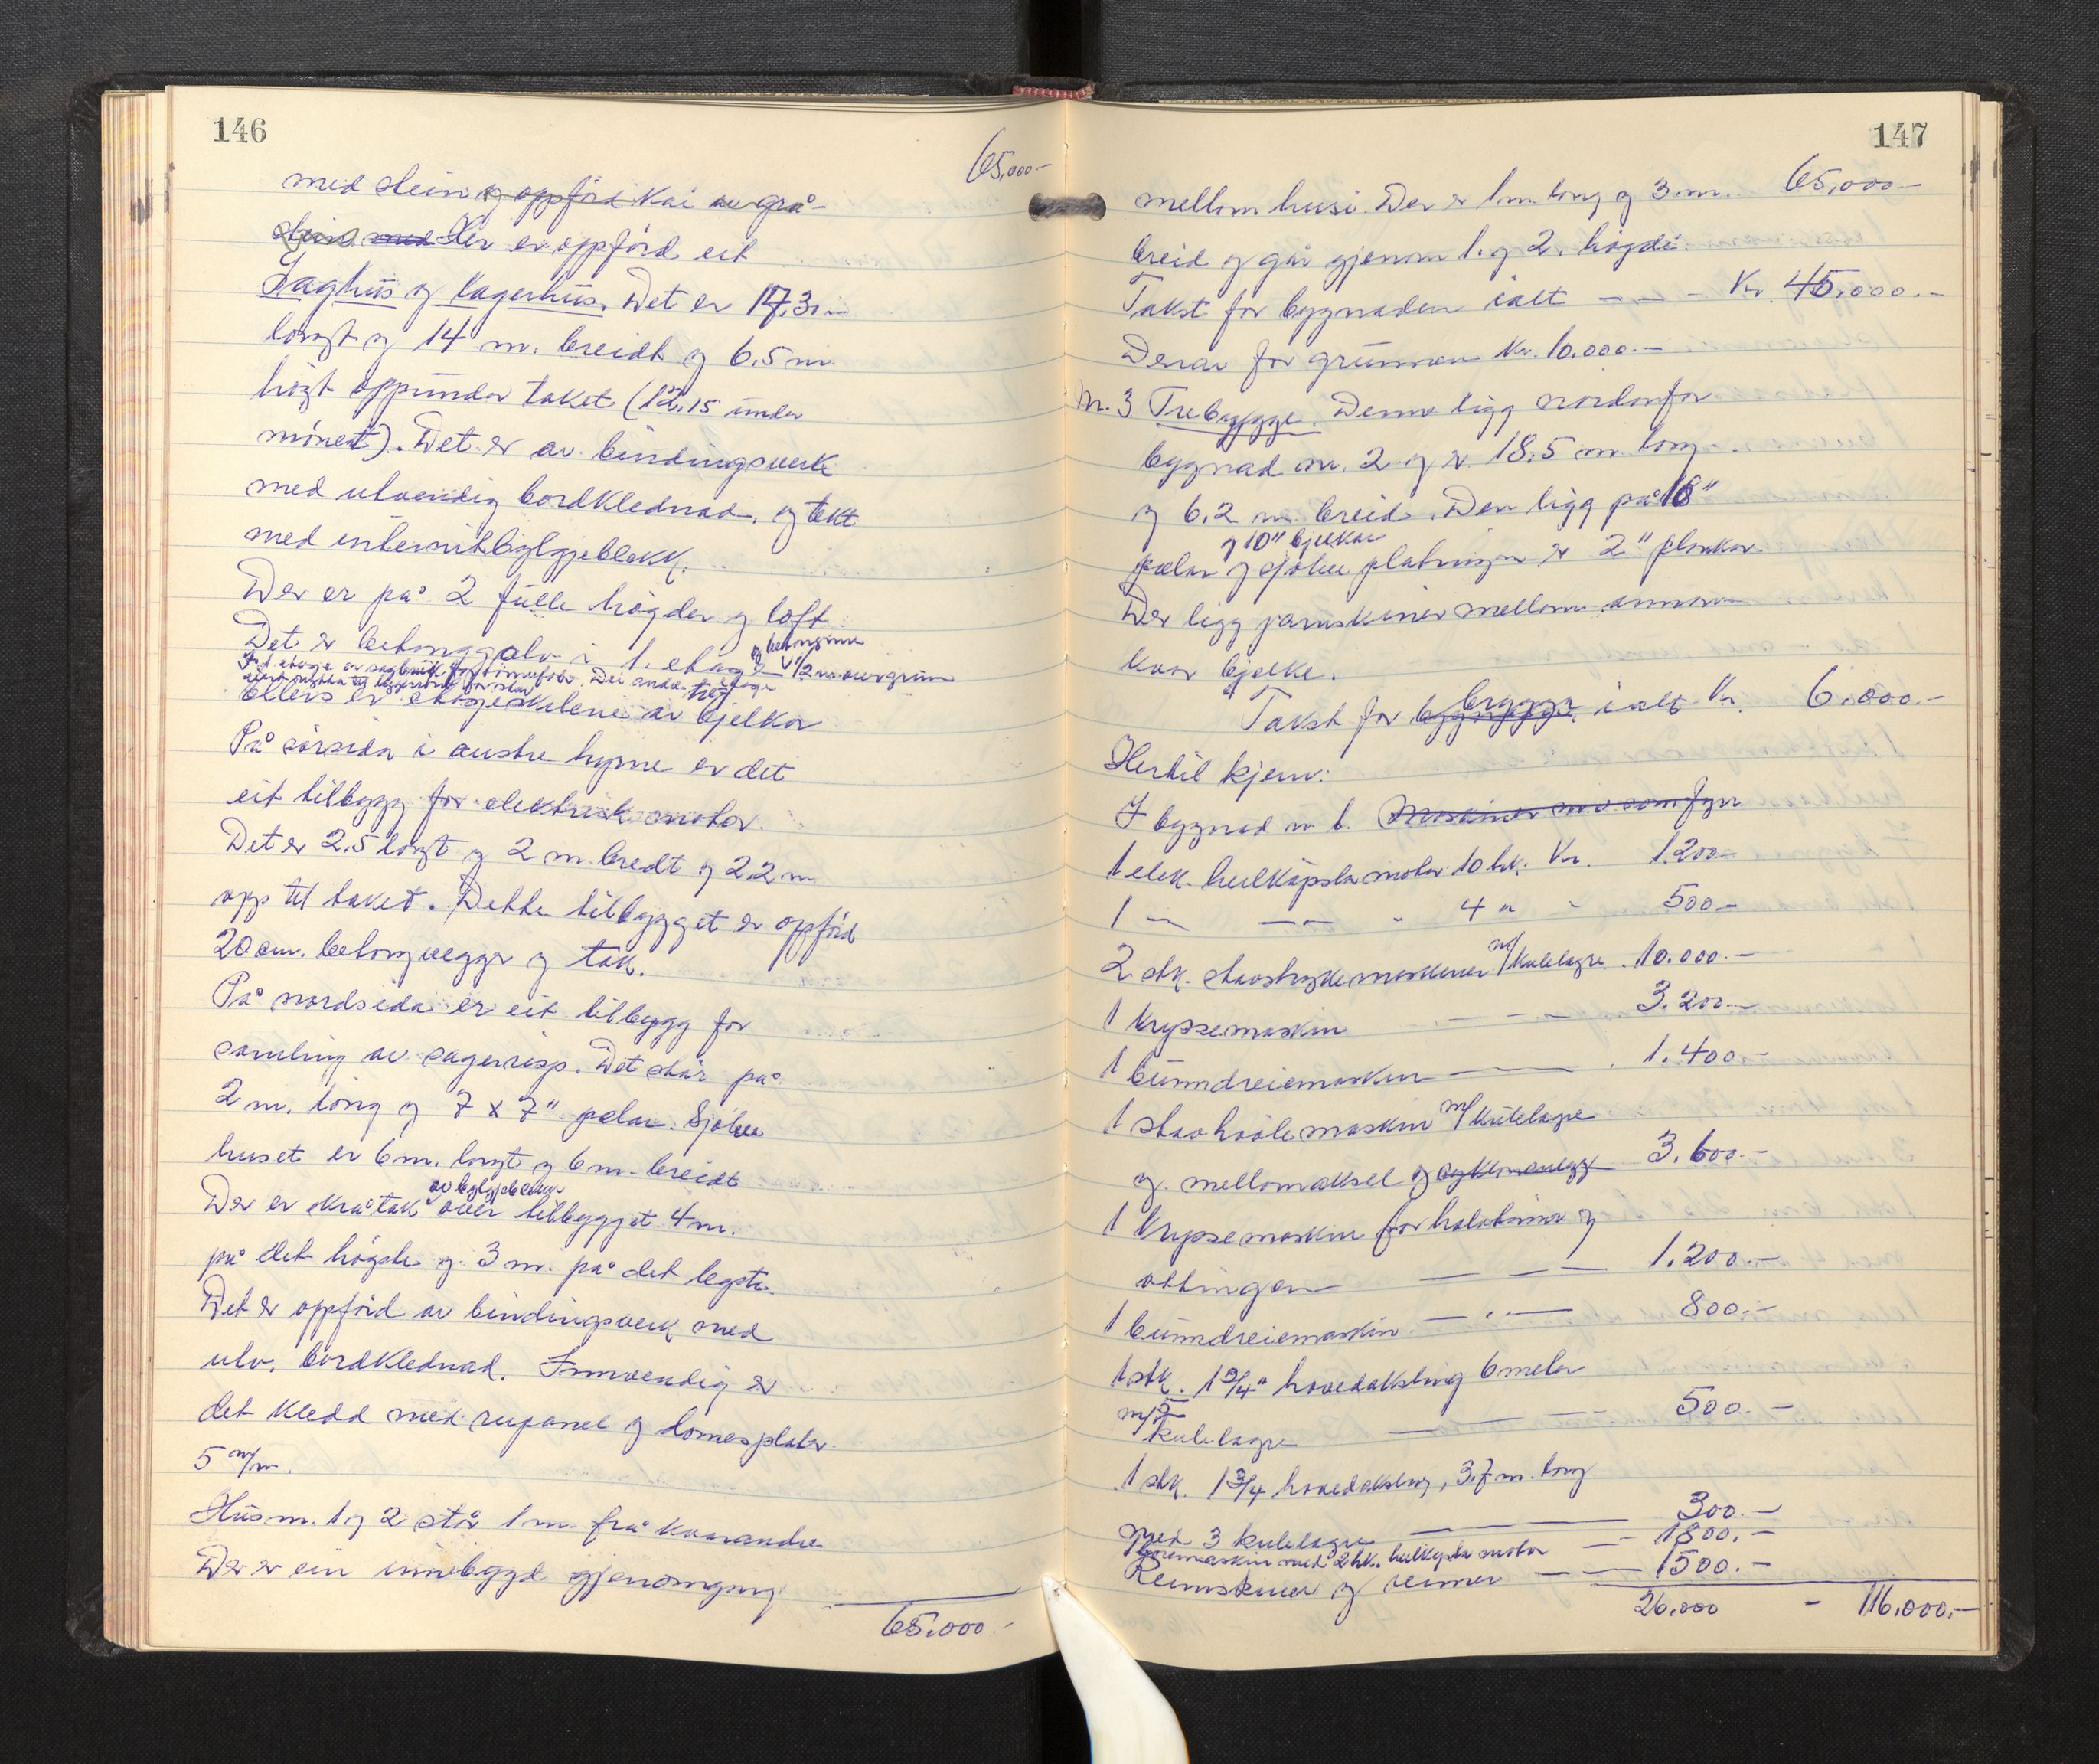 146
65,000.-
med stein og oppförd kai av grå-
stein med Her er oppförd eit
Saghus og lagerhus. Det er 17,3 m
langt og 14 m. breidt og 6.5 m
högt oppunder taket (12.15 under
mönet). Det er av bindingsverk
med utvendig bordklednad, og tekt
med internitbylgjeblekk.
Der er på 2 fulle högder og loft
Det er betonggolv i 1. etasje og betongmur 1/2 m over grunn
Ellers er etasjeskilene av tre bjelkar
På sörsida i austre hyrne er det
eit tilbygg for elektrisk motor.
Det er 2.5 langt og 2 m. bredt og 2.2 m
opp til taket. Dette tilbygget er oppförd
20 cm. betongvegger og tak.
På nordsida er eit tilbygg for
samling av sagerusp. Det står på
2 m. long og 7 x 7" pelar. Sjölve
huset er 6 m. langt og 6 m. breidt
Der er skråtak av bylgjeblekk over tilbygget 4 m.
på det högste og 3 m. på det legste.
Det er oppförd av bindingsverk med
utv. bordklednad. Innvendig er
det kledd med rupanel og plater
5 m/m.
Hus nr. 1 og 2 står 1 m. frå kvarandre
Der er ein innebygd gjenomgang
65.000.-
147
mellom husi. Den er 1 m. long og 3 m. 65,000.-
breid og går gjenom 1. og 2. högdi.
Takst for bygnaden ialt - - - Kr. 45.000.-
Derav for grunnen Kr. 10.000.-
Nr. 3 Trebrygge. Denne ligg nordanfor
bygnad nr. 2 og er 18.5 m long
og 6.2 m. breid. Den ligg på 18"
og 10" bjelkar
pelar og sjölve platningen er 2" plankar.
Der ligg jarnskiner mellom annankvar
bjelke.
Takst for brygga ialt Kr. 6.000.-
Hertil kjem:
I bygnad nr. 1. Maskiner m.v. som fyr
1 elek. heilkapsla motor 10 hk. Kr. 1.200.-
1 - - - 4 " - 500.-
2 stk. stavstrykemaskiner m/kulelagre . 10.000.-
1 krysemaskin - - - 3.200.-
1 bunndreiemaskin - - . 1.400.-
1 stavhövlemaskin m/kulelagre
og mellomaksel og 3.600.-
1 krysemaskin for halvtunner og
åttingen - - - 1.200.-
1 bunndreiemaskin - - 800.-
1 stk. 1 3/4" hovedaksling 6 meter
m/5
kulelagre - - - 500.-
1 stk. 1 3/4 hovedaksling, 3.7 m. long
med 3 kulelagre - 300.-
boremaskin med 2 hk. heilkapsla motor - 1800.-
Reimskiver og reimer - - 1500.-
26.000 - 116.000.-